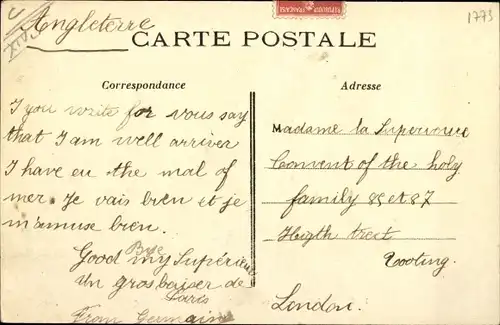 Angleterre
1775
CARTE POSTALE
Correspondance
Adresse
I you write for vous say
that I am well arriver
I have eu the mal of
mer. Je vais bien et je
m'amuse bien.
Good Bye my Supérieure
Un gros baiser de
Paris
From Germaine
Madame la Superieure
Convent of the holy
family 85 et 87
Higth treet
Tooting.
London.